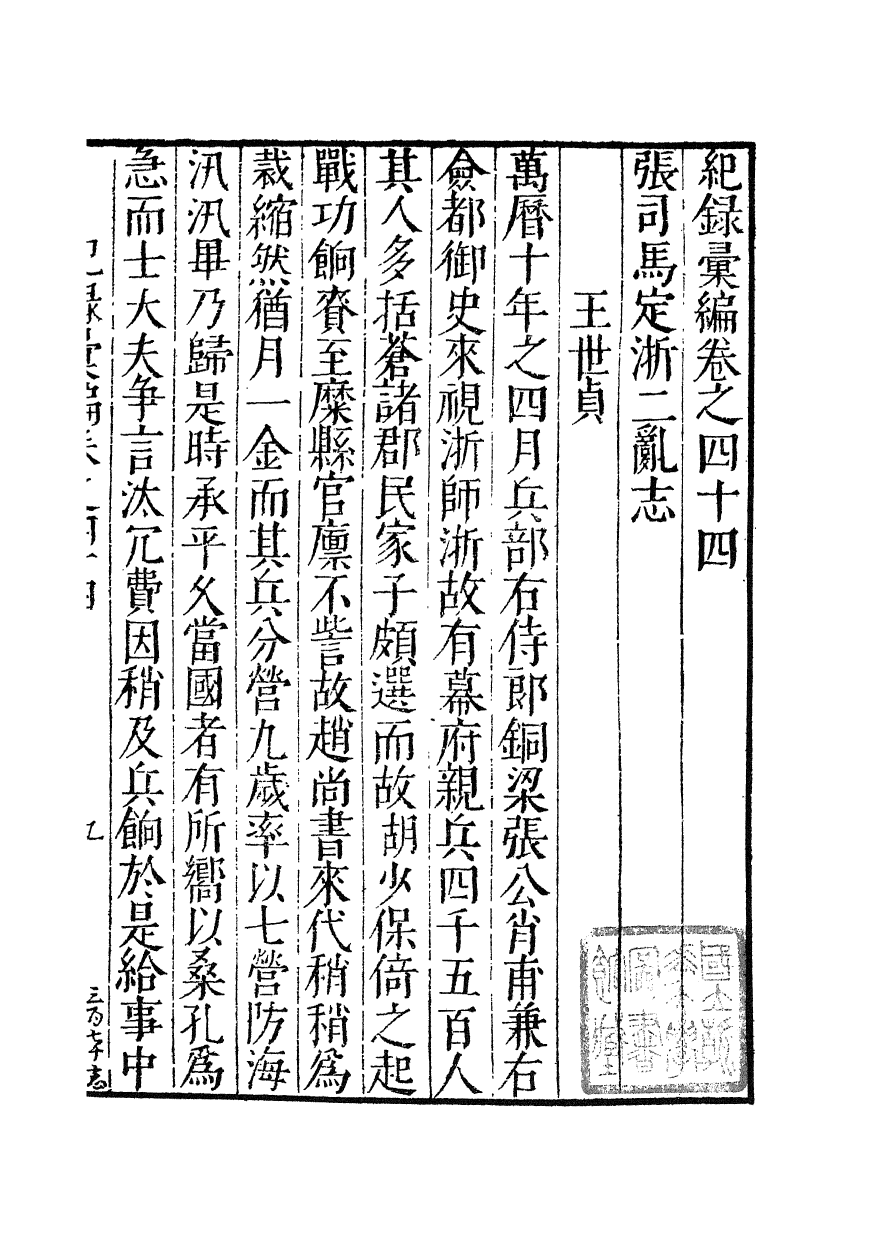 紀録彙編卷之四十四
張司馬定浙二亂志
王世貞
萬曆十年之四月兵部右侍郎銅梁張公肖甫兼右
僉都御史來視浙師浙故有幕府親兵四千五百人
其人多括蒼諸郡民家子頗選而故胡少保倚之起
戰功餉賚至糜縣官廪不訾故趙尚書來代稍稍爲
裁縮然猶月一金而其兵分營九歲率以七營防海
汛汛畢乃歸是時承平久當國者有所嚮以桑孔爲
急而士大夫争言汰冗費因稍及兵餉於是給事中